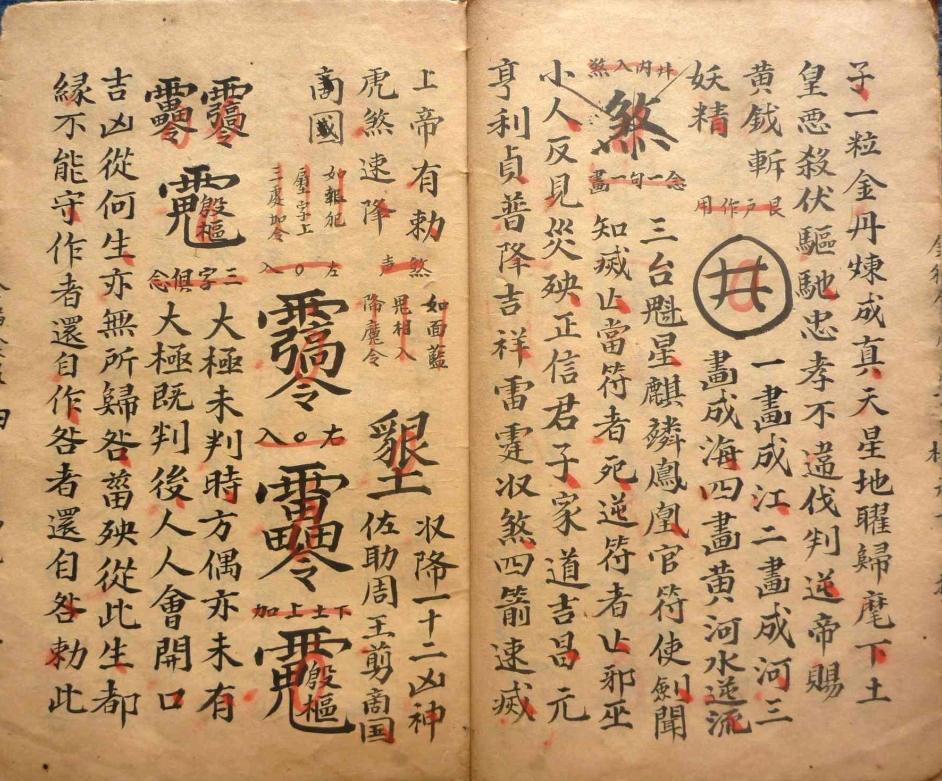 子一粒金丹煉成真天星地曜歸麾下土
皇惡殺伏驅馳忠孝不違伐判逆帝賜
黃鉞斬
妖精
艮戶作用
井
一畫成江二畫成河三
畫成海四畫黃河水逆流
井內入煞
煞
念一句一畫
三台魁星麒麟鳳凰官符使劍聞
知滅亾當符者死逆符者亾邪巫
小人反見災殃正信君子家道吉昌元
亨利貞普降吉祥雷霆收煞四箭速滅
上帝有勅
煞聲
收降一十二凶神
虎煞速降
如面藍
鬼相入
降魔令
佐助周王剪商国
商國
如報犯
字上
三處加令
左〇入
右〇入
下土上加
殷樞
殷樞
三字俱念
大極未判時方偶亦未有
大極既判後人人會開口
吉凶從何生亦無所歸咎菑殃從此生都
緣不能守作者還自作咎者還自咎勅此